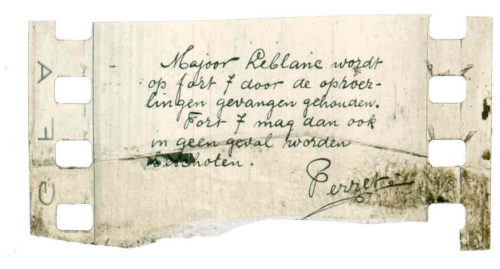 Majoor Leblanc wordt
op fort 7 door de oproer-
lingen gevangen gehouden.
Fort 7 mag dan ook
in geen geval worden
beschoten.
Perret